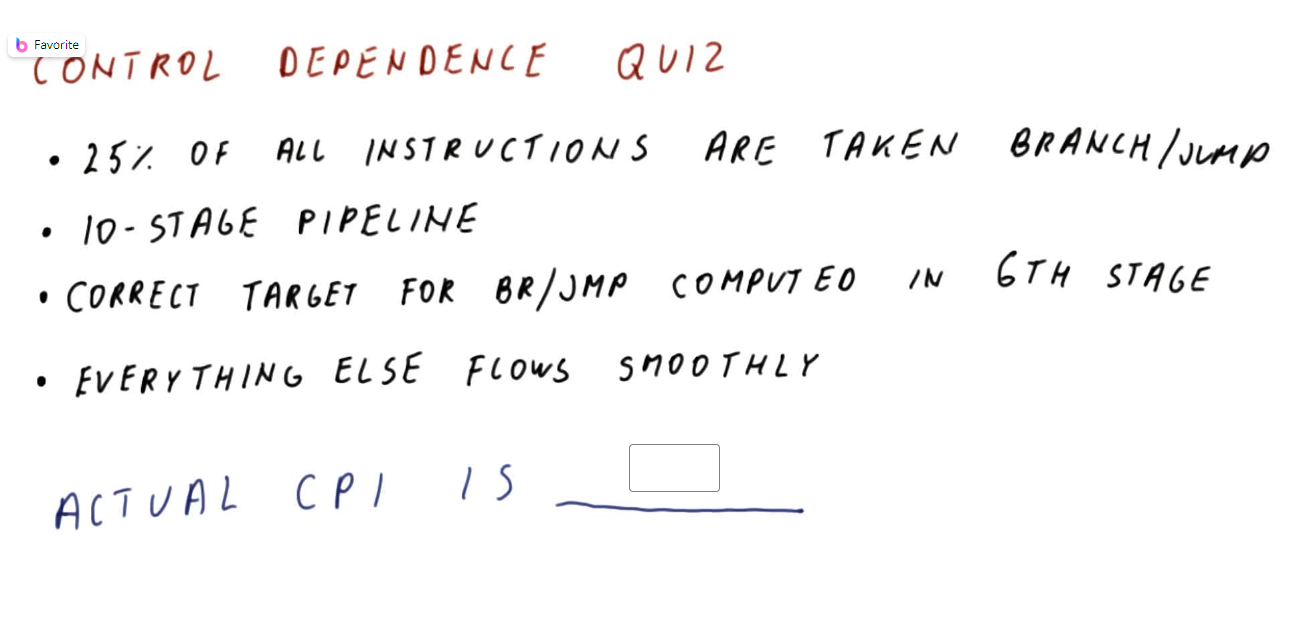 Favorite
CONTROL DEPENDENCE QUIZ
• 25% OF ALL INSTRUCTIONS ARE TAKEN BRANCH/JUMP
• 10-STAGE PIPELINE
• CORRECT TARGET FOR BR/JMP COMPUTED IN 6TH STAGE
• EVERYTHING ELSE FLOWS SMOOTHLY
ACTUAL CPI IS